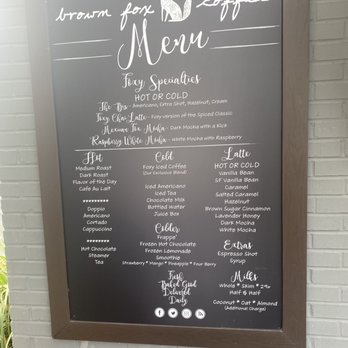 brown fox coffee
Menu
Foxy Specialties
HOT OR COLD
The Bro - Americano, Extra Shot, Hazelnut, Cream
Foxy Chai Latte - Foxy version of the Spiced Classic
Mexican Fox Mocha - Dark Mocha with a Kick
Raspberry White Mocha - White Mocha with Raspberry
Hot
Medium Roast
Dark Roast
Flavor of the Day
Cafe Au Lait
********
Doppio
Americano
Cortado
Cappuccino
********
Hot Chocolate
Steamer
Tea
Cold
Foxy Iced Coffee
(Our Exclusive Blend)
Iced Americano
Iced Tea
Chocolate Milk
Bottled Water
Juice Box
Colder
Frappe'
Frozen Hot Chocolate
Frozen Lemonade
Smoothie
Strawberry * Mango * Pineapple * Four Berry
Fresh
Baked Good
Delivered
Daily
Latte
HOT OR COLD
Vanilla Bean
SF Vanilla Bean
Caramel
Salted Caramel
Hazelnut
Brown Sugar Cinnamon
Lavender Honey
Dark Mocha
White Mocha
Extras
Espresso Shot
Syrup
Milks
Whole * Skim * 2%
Half & Half
Coconut * Oat * Almond
(Additional Charge)